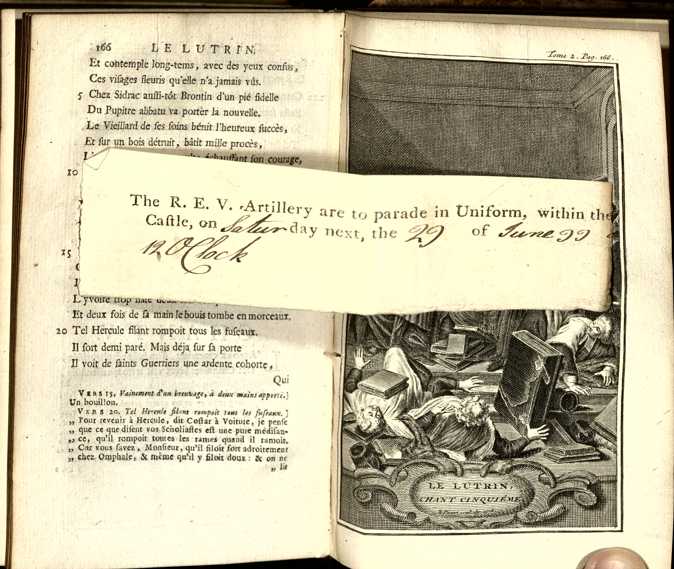 166 LE LUTRIN.
Et contemple long-tems, avec des yeux confus,
Ces visages fleuris qu'elle n'a jamais vûs.
5 Chez Sidrac aussi-tôt Brontin d'un pié fidelle
Du Pupitre abbatu va porter la nouvelle.
Le Vieillard de ses soins bénit l'heureux succès,
Et sur un bois détruit, bâtit mille procès,
échauffant son courage,
10
The R. E. V. Artillery are to parade in Uniform, within the
Castle, on Saturday next, the 29 of June 99
12 O'Clock
15
L'yvoire trop
Et deux fois de sa main le bouis tombe en morceaux.
20 Tel Hercule filant rompoit tous les fuseaux.
Il sort demi paré. Mais déja sur sa porte
Il voit de saints Guerriers une ardente cohorte,
Qui
VERS 15. Vainement d'un breuvage, à deux mains apporté.]
Un bouillon.
VERS 20. Tel Hercule filant rompoit tous les fuseaux.]
„ Pour revenir à Hercule, dit Costar à Voiture, je pense
„ que ce que disent vos Scholiastes est une pure médisan-
„ ce, qu'il rompoit toutes les rames quand il ramoit.
„ Car vous savez, Monsieur, qu'il filoit fort adroitement
„ chez Omphale, & même qu'il y filoit doux: & on ne
„ lit
Tome 2. Pag. 166.
LE LUTRIN.
CHANT CINQUIÉME.